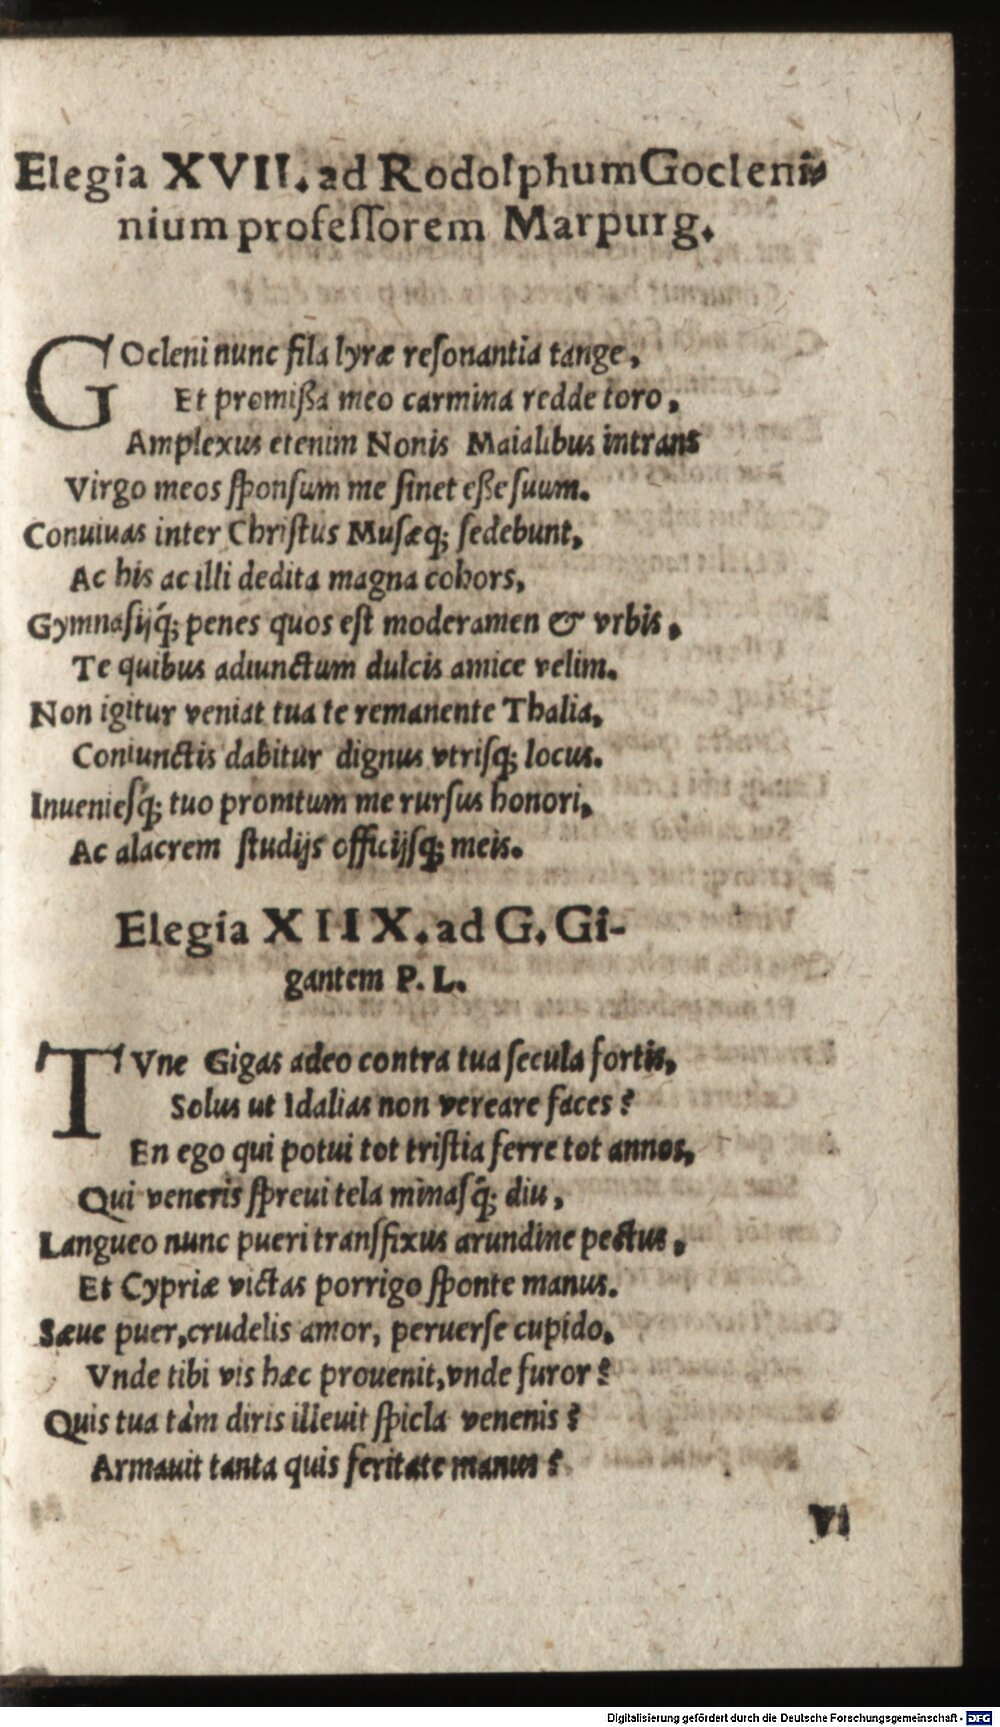 Elegia XVII. ad Rodolphum Gocleni-
nium professorem Marpurg.
GOcleni nunc fila lyræ resonantia tange,
Et promißa meo carmina redde toro,
Amplexus etenim Nonis Maialibus intrans
Virgo meos sponsum me sinet eße suum.
Conuiuas inter Christus Musæq; sedebunt,
Ac his ac illi dedita magna cohors,
Gymnasijq́; penes quos est moderamen & vrbis,
Te quibus adiunctum dulcis amice velim.
Non igitur veniat tua te remanente Thalia,
Coniunctis dabitur dignus vtrisq; locus.
Inueniesq́; tuo promtum me rursus honori,
Ac alacrem studijs officijsq; meis.
Elegia XIIX. ad G. Gi-
gantem P. L.
TVne Gigas adeo contra tua secula fortis,
Solus ut Idalias non vereare faces?
En ego qui potui tot tristia ferre tot annos,
Qui veneris spreui tela minasq́; diu,
Langueo nunc pueri transfixus arundine pectus,
Et Cypriæ victas porrigo sponte manus.
Sæue puer, crudelis amor, peruerse cupido,
Vnde tibi vis hæc prouenit, vnde furor?
Quis tua tàm diris illeuit spicla venenis?
Armauit tanta quis feritate manus?
VI
Digitalisierung gefördert durch die Deutsche Forschungsgemeinschaft - DFG